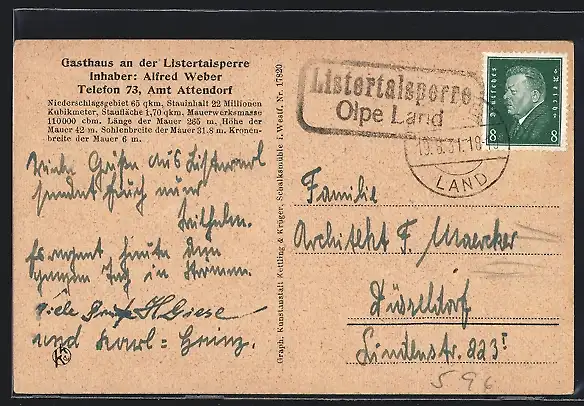 Gasthaus an der Listertalsperre
Inhaber: Alfred Weber
Telefon 73, Amt Attendorf
Niederschlagsgebiet 65 qkm, Stauinhalt 22 Millionen
Kubikmeter, Staufläche 1,70 qkm, Mauerwerksmasse
110000 cbm. Länge der Mauer 265 m, Höhe der
Mauer 42 m. Sohlenbreite der Mauer 31,8 m. Kronen-
breite der Mauer 6 m.
Viele Grüße aus Listernohl
sendet Euch
Wilhelm.
Es regnet heute den
ganzen Tag in Strömen.
Viele Grüße H. Giese
und Karl-Heinz.
Graph. Kunstanstalt Kettling & Krüger, Schalksmühle i. Westf. Nr. 17820
Listertalsperre
Olpe Land
Deutsches Reich
8 8
LAND
Familie
Architekt F. Maercker
Düsseldorf
Lindenstr. 223 I
596